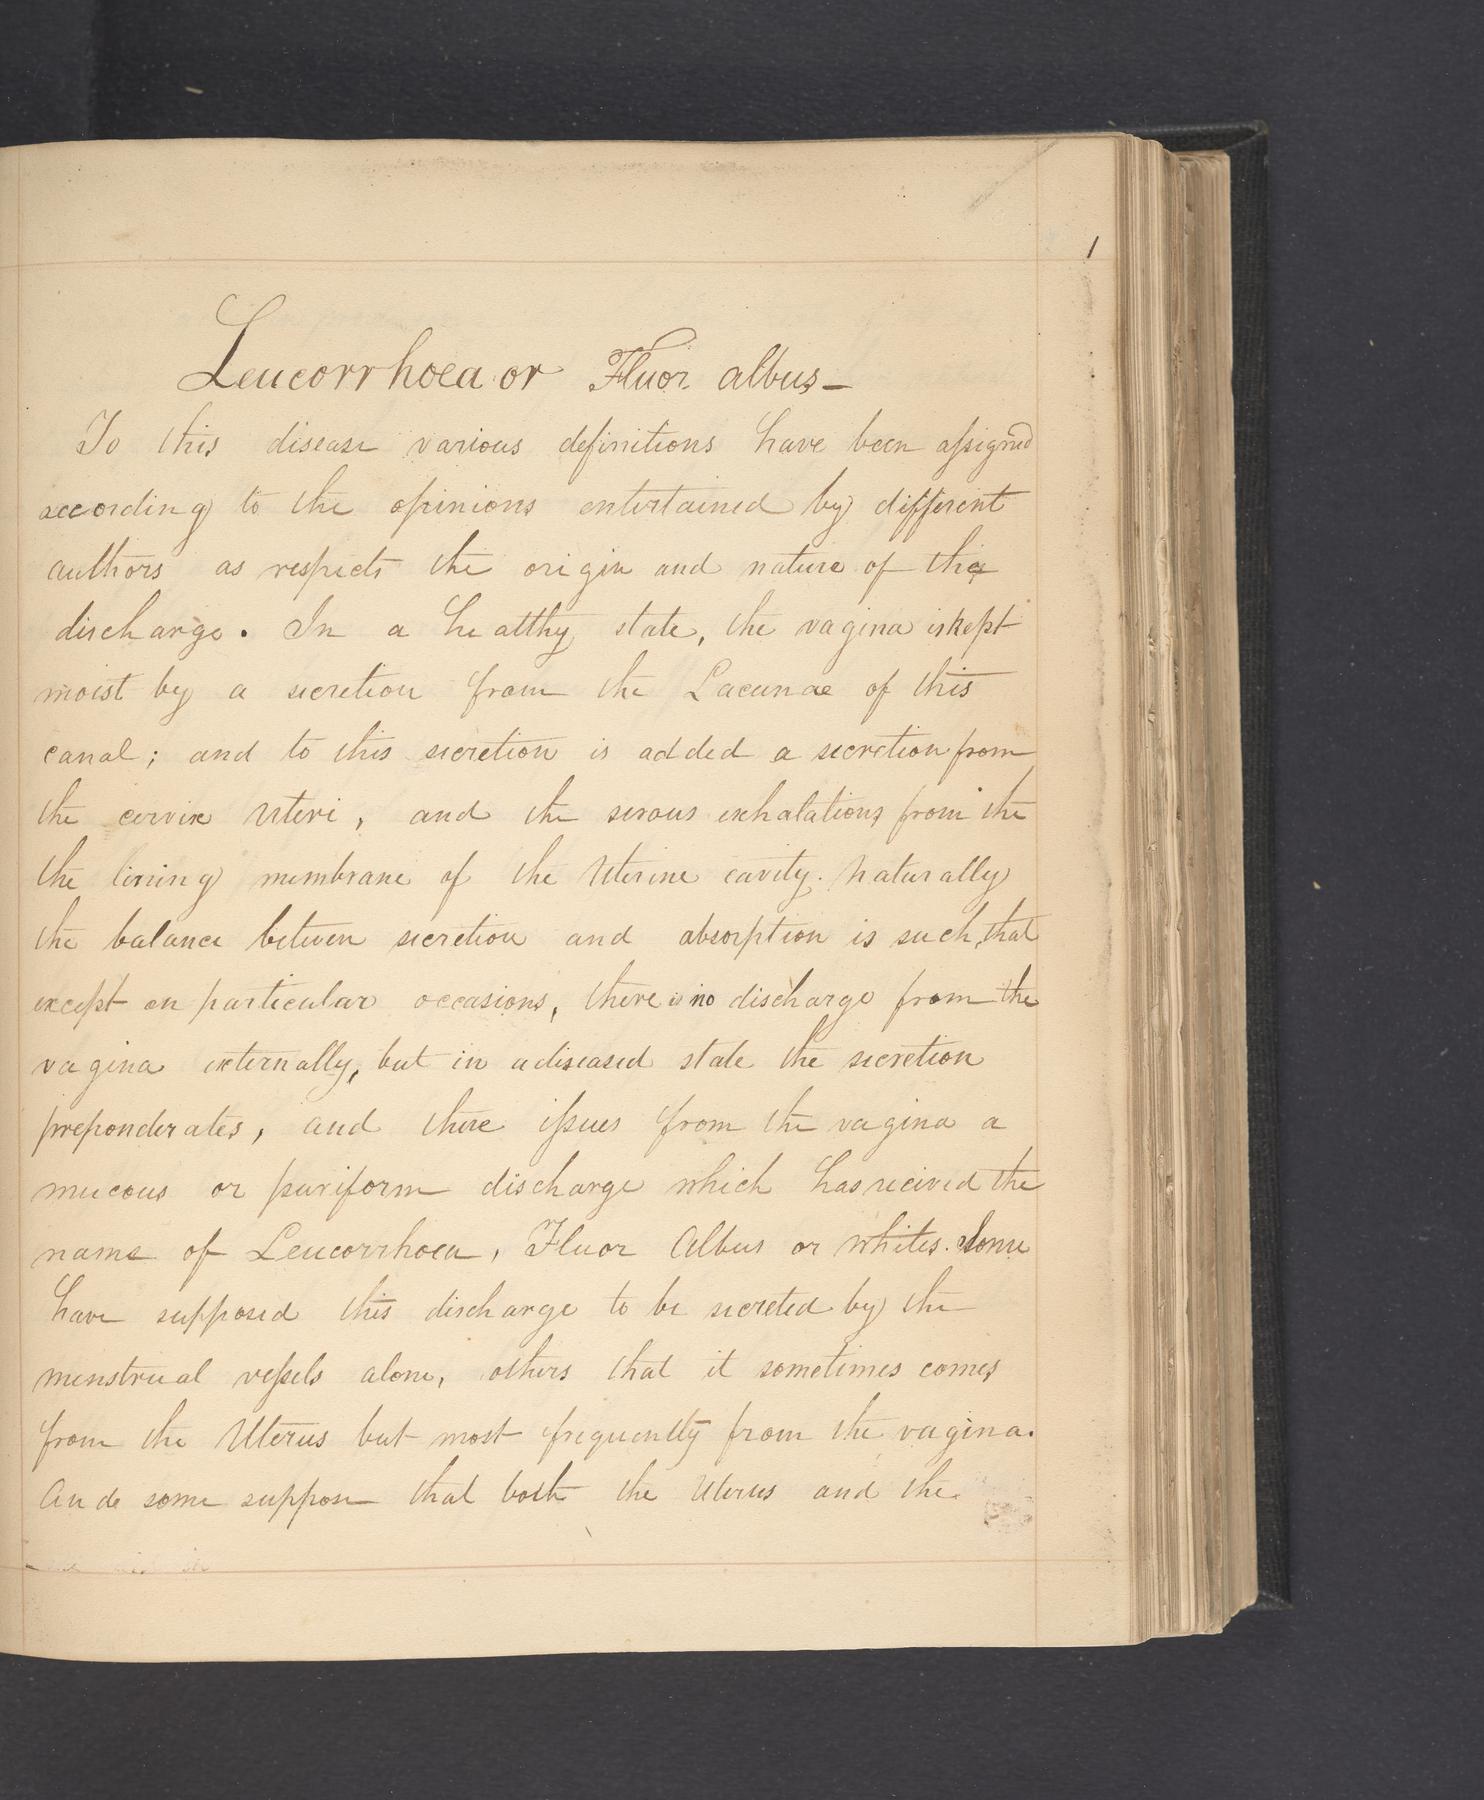 1
Leucorrhoea or Fluor albus_
To this disease various definitions have been assigned
according to the opinions entertained by different
authors as respects the origin and nature of the
discharge. In a healthy state, the vagina is kept
moist by a secretion from the Lacunae of this
canal; and to this secretion is added a secretion from
the cervix Uteri, and the serous exhalations from the
the lining membrane of the Uterine cavity. Naturally
the balance between secretion and absorption is such, that
except on particular occasions, there is no discharge from the
vagina externally, but in a diseased state the secretion
preponderates, and there issues from the vagina a
mucous or puriform discharge which has recived the
name of Leucorrhoea, Fluor Albus or whites. Some
have supposed this discharge to be secreted by the
menstrual vessels alone, others that it sometimes comes
from the Uterus but most frequently from the vagina.
And some suppose that both the Uterus and the